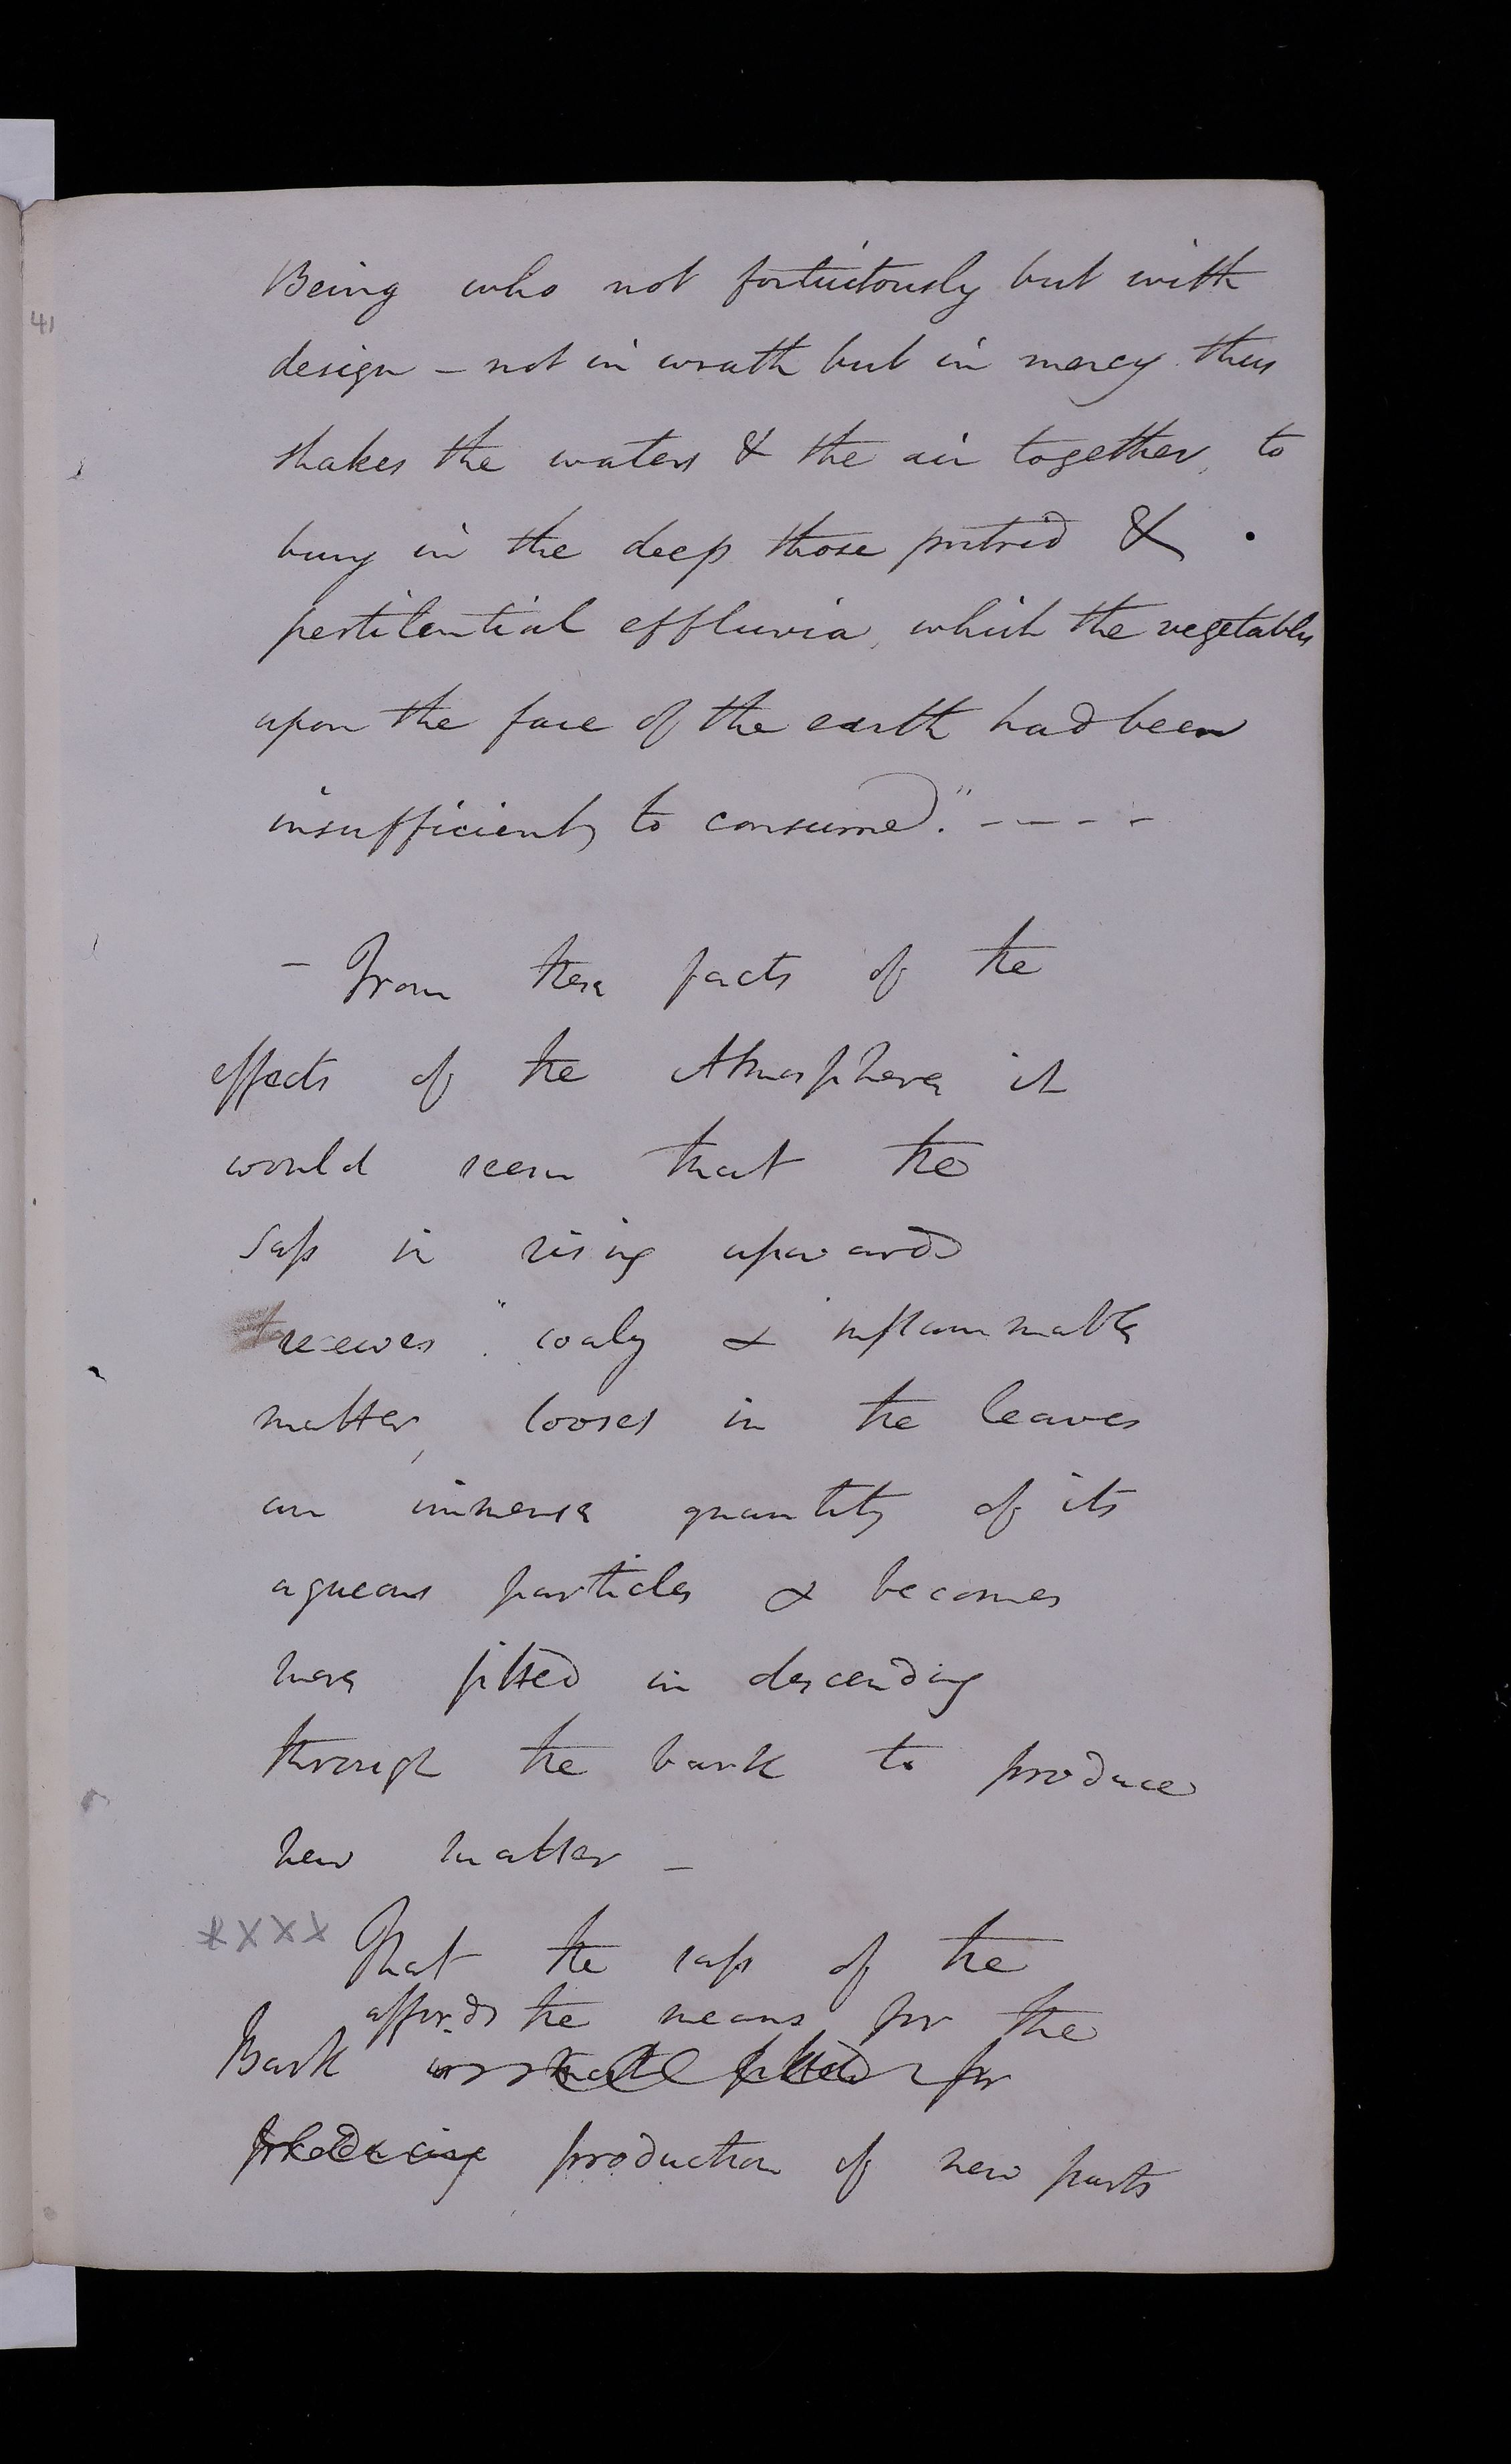 41
Being who not fortuitously but with
design - not in wrath but in mercy thus
shakes the waters & the air together, to
bury in the deep those putrid &
pestilential effluvia, which the vegetables
upon the face of the earth had been
insufficient to consume." - - - -
- From these facts of the
effects of the Atmosphere it
would seem that the
sap in rising upwards
receives "coaly & inflammable
matter, looses in the leaves
an immense quantity of its
aqueous particles & becomes
here fitted in descending
through the bark to produce
new matter -
xxxx That the sap of the
affords the means for the
Bark is fitted for
producing production of new parts